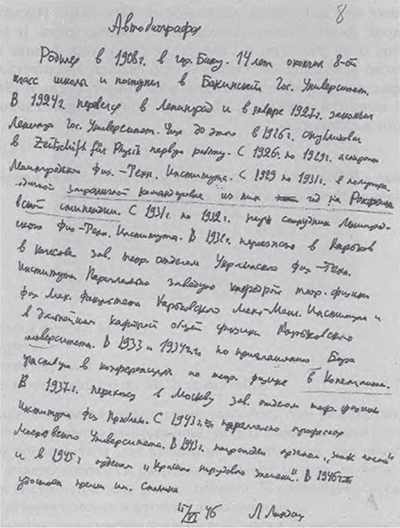 8
Автобиография
Родился в 1908 г. в гор. Баку. 14 лет окончил 8-ой
класс школы и поступил в Бакинский Гос. Университет.
В 1924 г. перевелся в Ленинград и в январе 1927 г. закончил
Ленингр. Гос. Университет. Еще до этого в 1926 г. опубликовал
в Zeitschrift für Physik первую работу. С 1926 г. по 1929 г. аспирант
Ленинградского Физ.-Техн. Института. С 1929 по 1931 г. в полутора-
годичной заграничной командировке из них год на Рокфелле-
ровской стипендии. С 1931 г. по 1932 г. научн. сотрудник Ленинград-
ского Физ-Техн. Института. В 1932 г. переехал в Харьков
в качестве зав. теор. отделом Украинского Физ-Техн.
Института. Параллельно заведую кафедрой теор. физики
физ Мех. факультета Харьковского Мех-Маш. Института и
в дальнейшем кафедрой общей физики Харьковского
Университета. В 1933 и 1934 гг. по приглашению Бора
участвую в конференциях по теор. физике в Копенгагене.
В 1937 г. перехожу в Москву зав. отделом теор. физики
Института Физ Проблем. С 1943 г. параллельно профессор
Московского Университета. В 1943 г. награжден орденом „знак почета“
и в 1945 г. орденом „Красного трудового знамени“. В 1946 г.
удостоен премии им. Сталина
15/VI 46 Л. Ландау